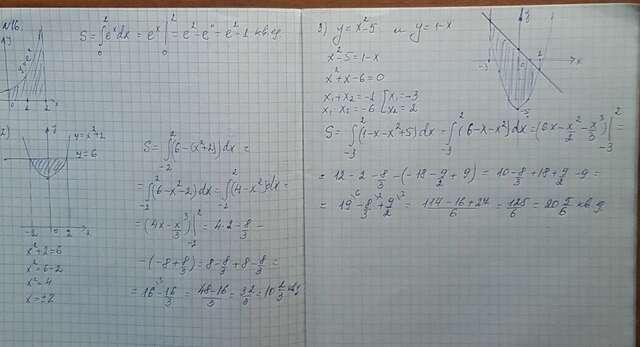 №16.
S = ∫₀² eˣdx = eˣ |₀² = e² - e⁰ = e² - 1 кв.ед
2)
y = x²+2
y = 6
-2 0 2 x
S = ∫₋₂² (6-(x²+2))dx =
= ∫₋₂² (6-x²-2)dx = ∫₋₂² (4-x²)dx =
= (4x - x³/3) |₋₂² = 4·2 - 8/3 -
-(-8+8/3) = 8 - 8/3 + 8 - 8/3 =
= 16 - 16/3 = 48-16/3 = 32/3 = 10 2/3 кв.
x²+2=6
x²=6-2
x²=4
x=±2
3) y = x²-5 и y = 1-x
x²-5=1-x
x²+x-6=0
x₁+x₂=-1 { x₁=-3
x₁ x₂=-6 x₂=2
-3 0 2 x
-5
S = ∫₋₃² (1-x-x²+5)dx = ∫₋₃² (6-x-x²)dx = (6x - x²/2 - x³/3) |₋₃² =
= 12 - 2 - 8/3 - (-18 - 9/2 + 9) = 10 - 8/3 + 18 + 9/2 - 9 =
= 19 - 8/3 + 9/2 = 114-16+27/6 = 125/6 = 20 5/6 кв.ед